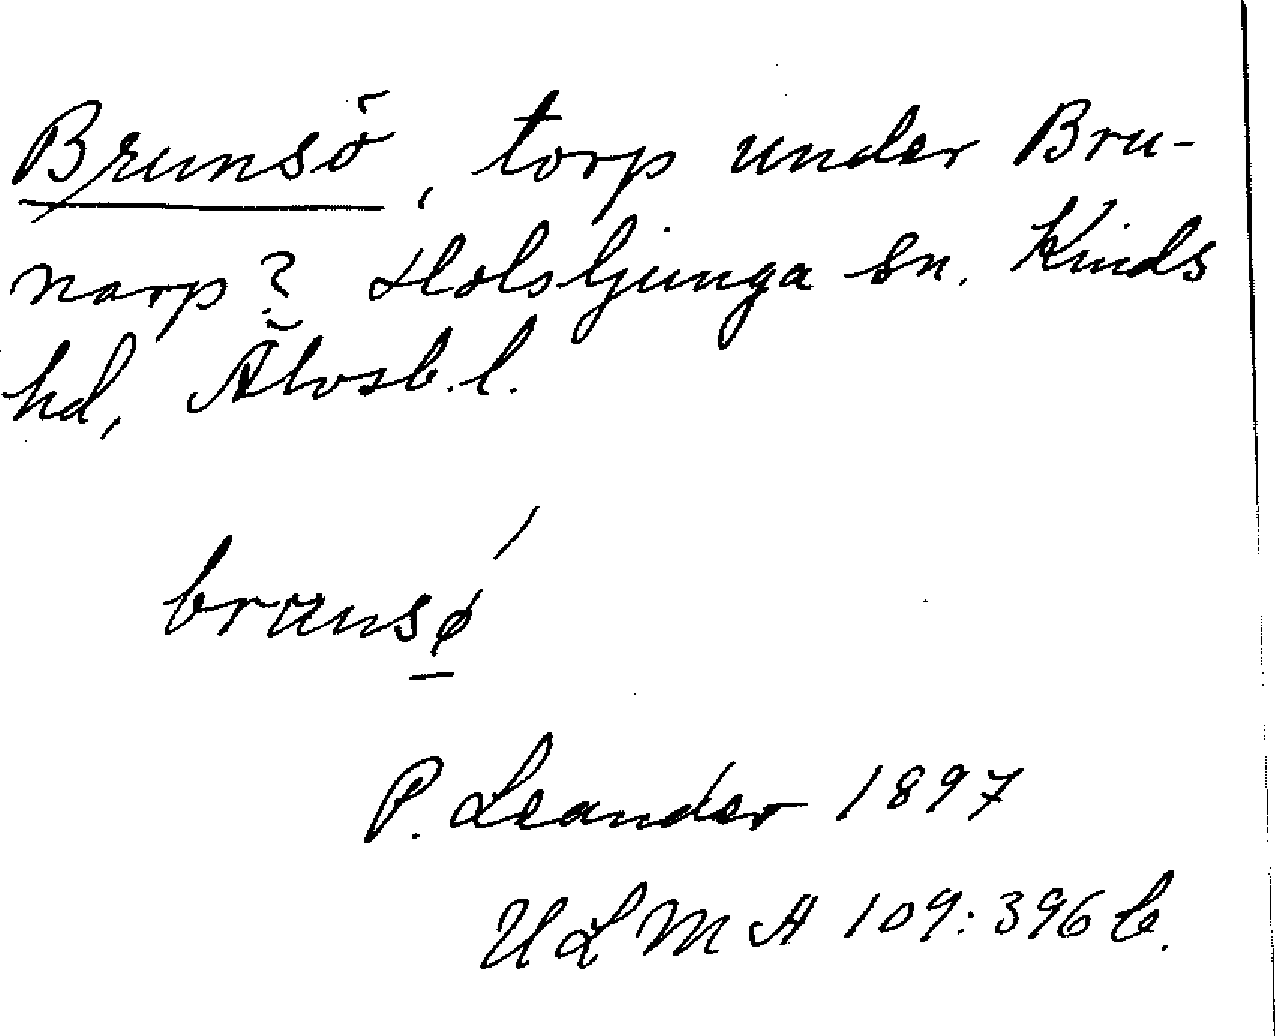 Brunsö, torp under Bru-
narp? Holsljunga sn. Kinds
hd, Älvsb. l.
brunsø
P. Leander 1897
ULMA 109:396 b.